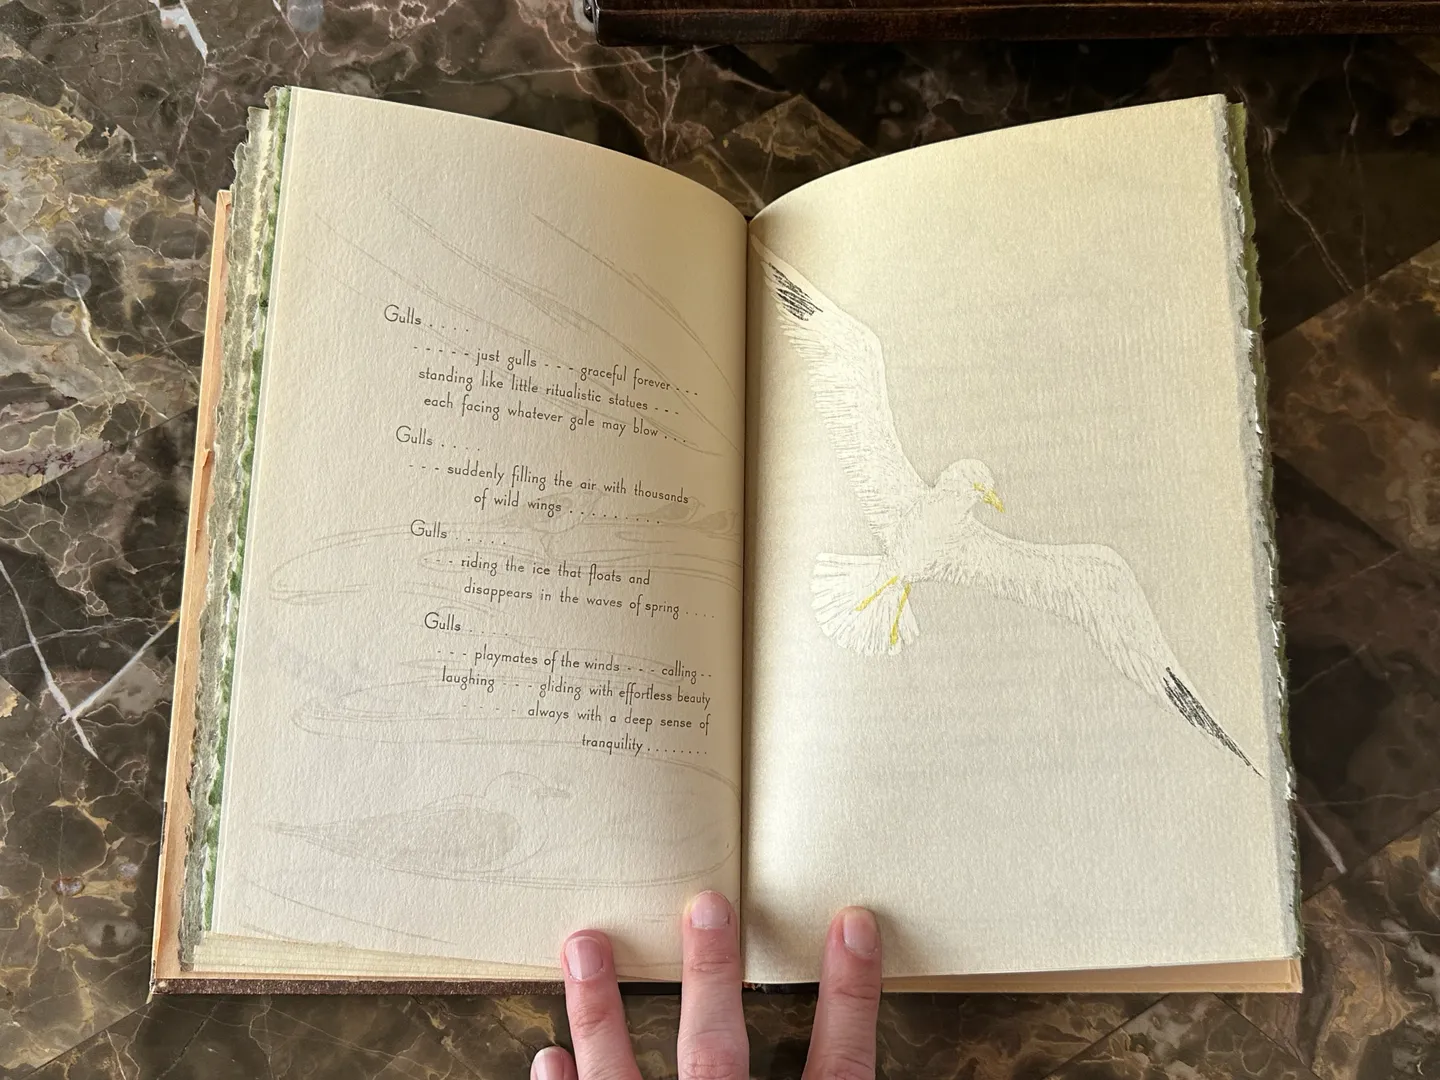 Gulls . . . .
- - - - - just gulls - - - graceful forever - - -
standing like little ritualistic statues - - -
each facing whatever gale may blow . . . .
Gulls . . . .
- - - suddenly filling the air with thousands
of wild wings . . . . . . . . . .
Gulls . . . . .
- - - riding the ice that floats and
disappears in the waves of spring . . . .
Gulls . . . .
- - - playmates of the winds - - - calling - -
laughing - - - gliding with effortless beauty
- - - - always with a deep sense of
tranquility . . . . . . . .